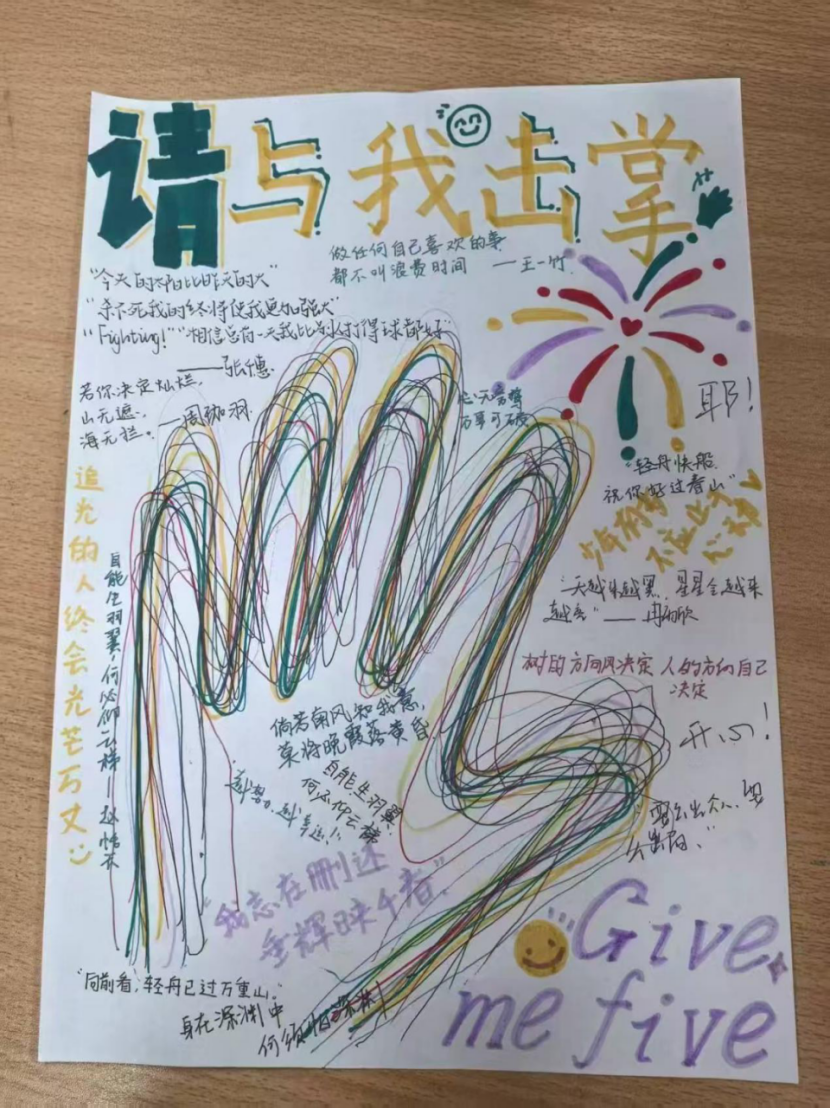 请与我击掌
做任何自己喜欢的事
都不叫浪费时间 ——王一竹
"今天的太阳比昨天的大"
"杀不死我的终将使我更加强大"
"Fighting!""相信总有一天我比别人打得球都好"
——张德
若你决定灿烂,
山无遮,
海无拦。—周珈羽
心无旁骛
万事可破
耶!
"轻舟快船,
祝你好过春山"
少年有梦
不应止于
心动
追光的人终会光芒万丈
自能生羽翼,何必仰云梯—赵
"天越来越黑,星星会越来
越亮"——冉
树的方向风决定 人的方向自己
决定
开心!
倘若南风知我意,
莫将晚霞落黄昏
自能生羽翼
何必仰云梯
越努力,越幸运!
"我志在删述
垂辉映千春"
"要么出众、要
么出局。"
"向前看,轻舟已过万重山。"
身在深渊中
何须怕深渊!
Give
me five